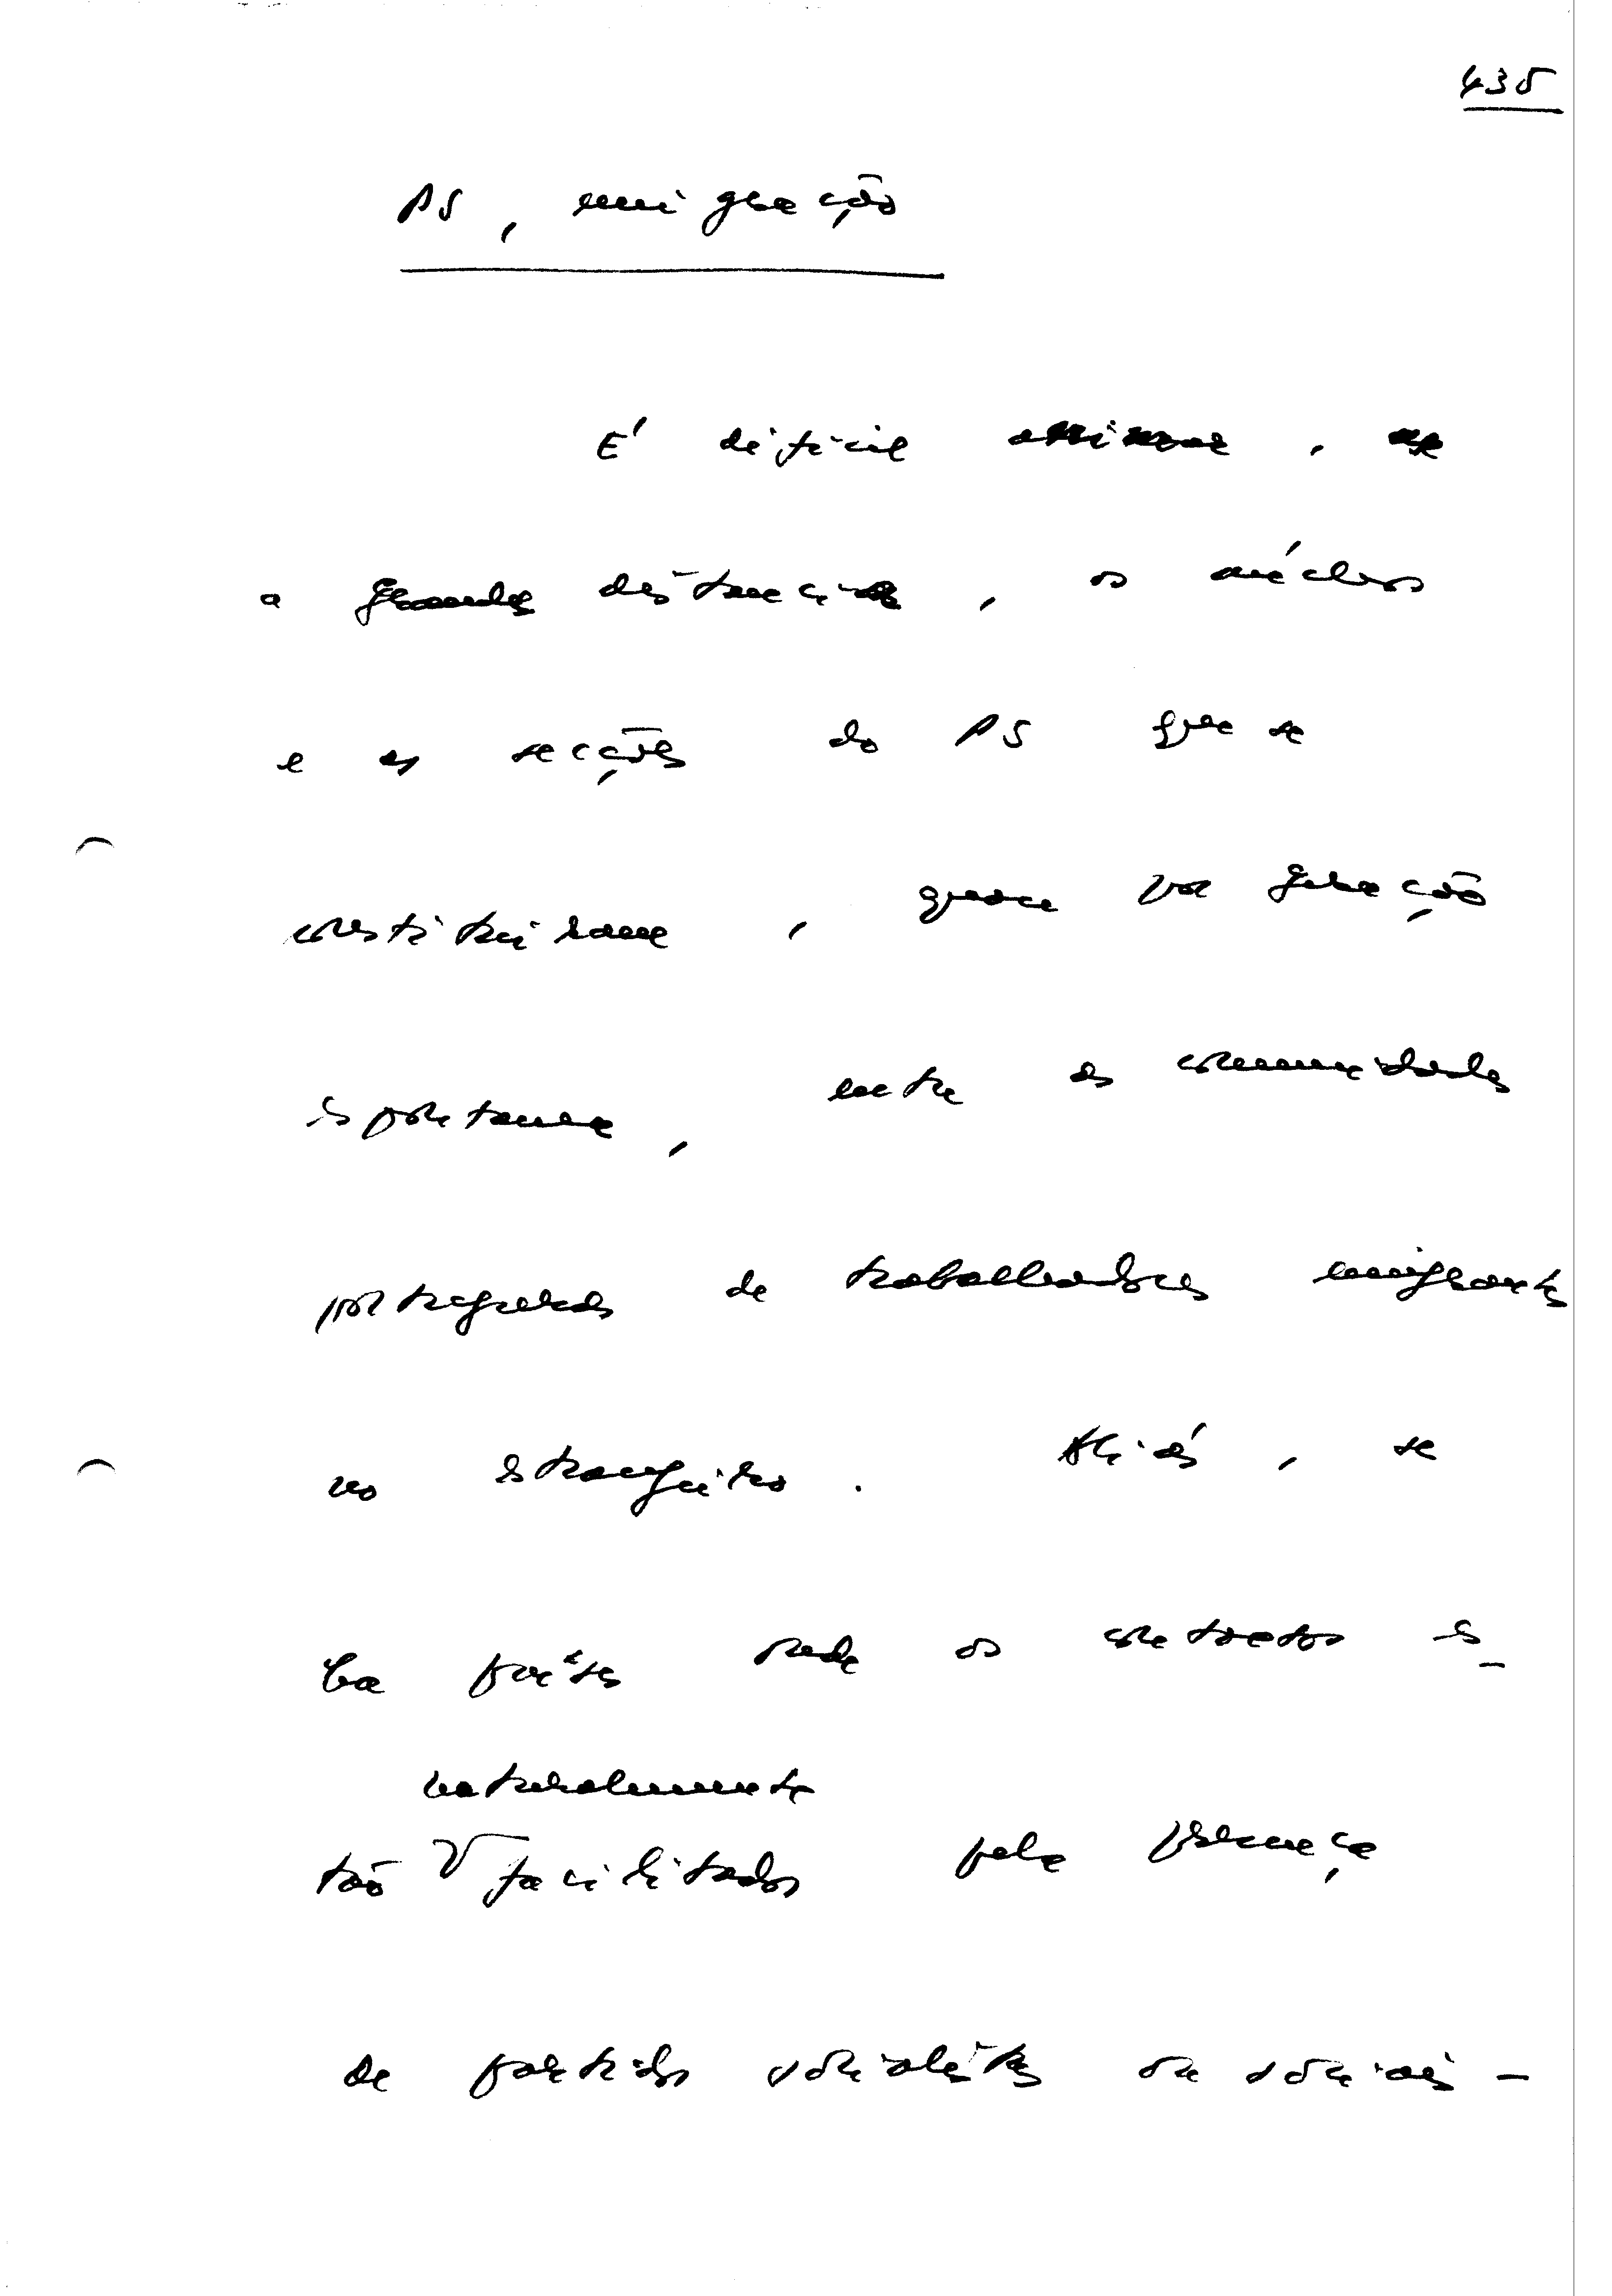 435
PS, emigração
É difícil animar,
a grande distancia, os núcleos
e as secções do PS que se
constituiram, quase por geração
espontanea, entre as comunidades
portuguesas de trabalhadores emigrantes
no estrangeiro. Aliás, se
ha países onde os contactos es-
naturalmente
tão facilitados pela presença
de partidos socialistas ou sociais-